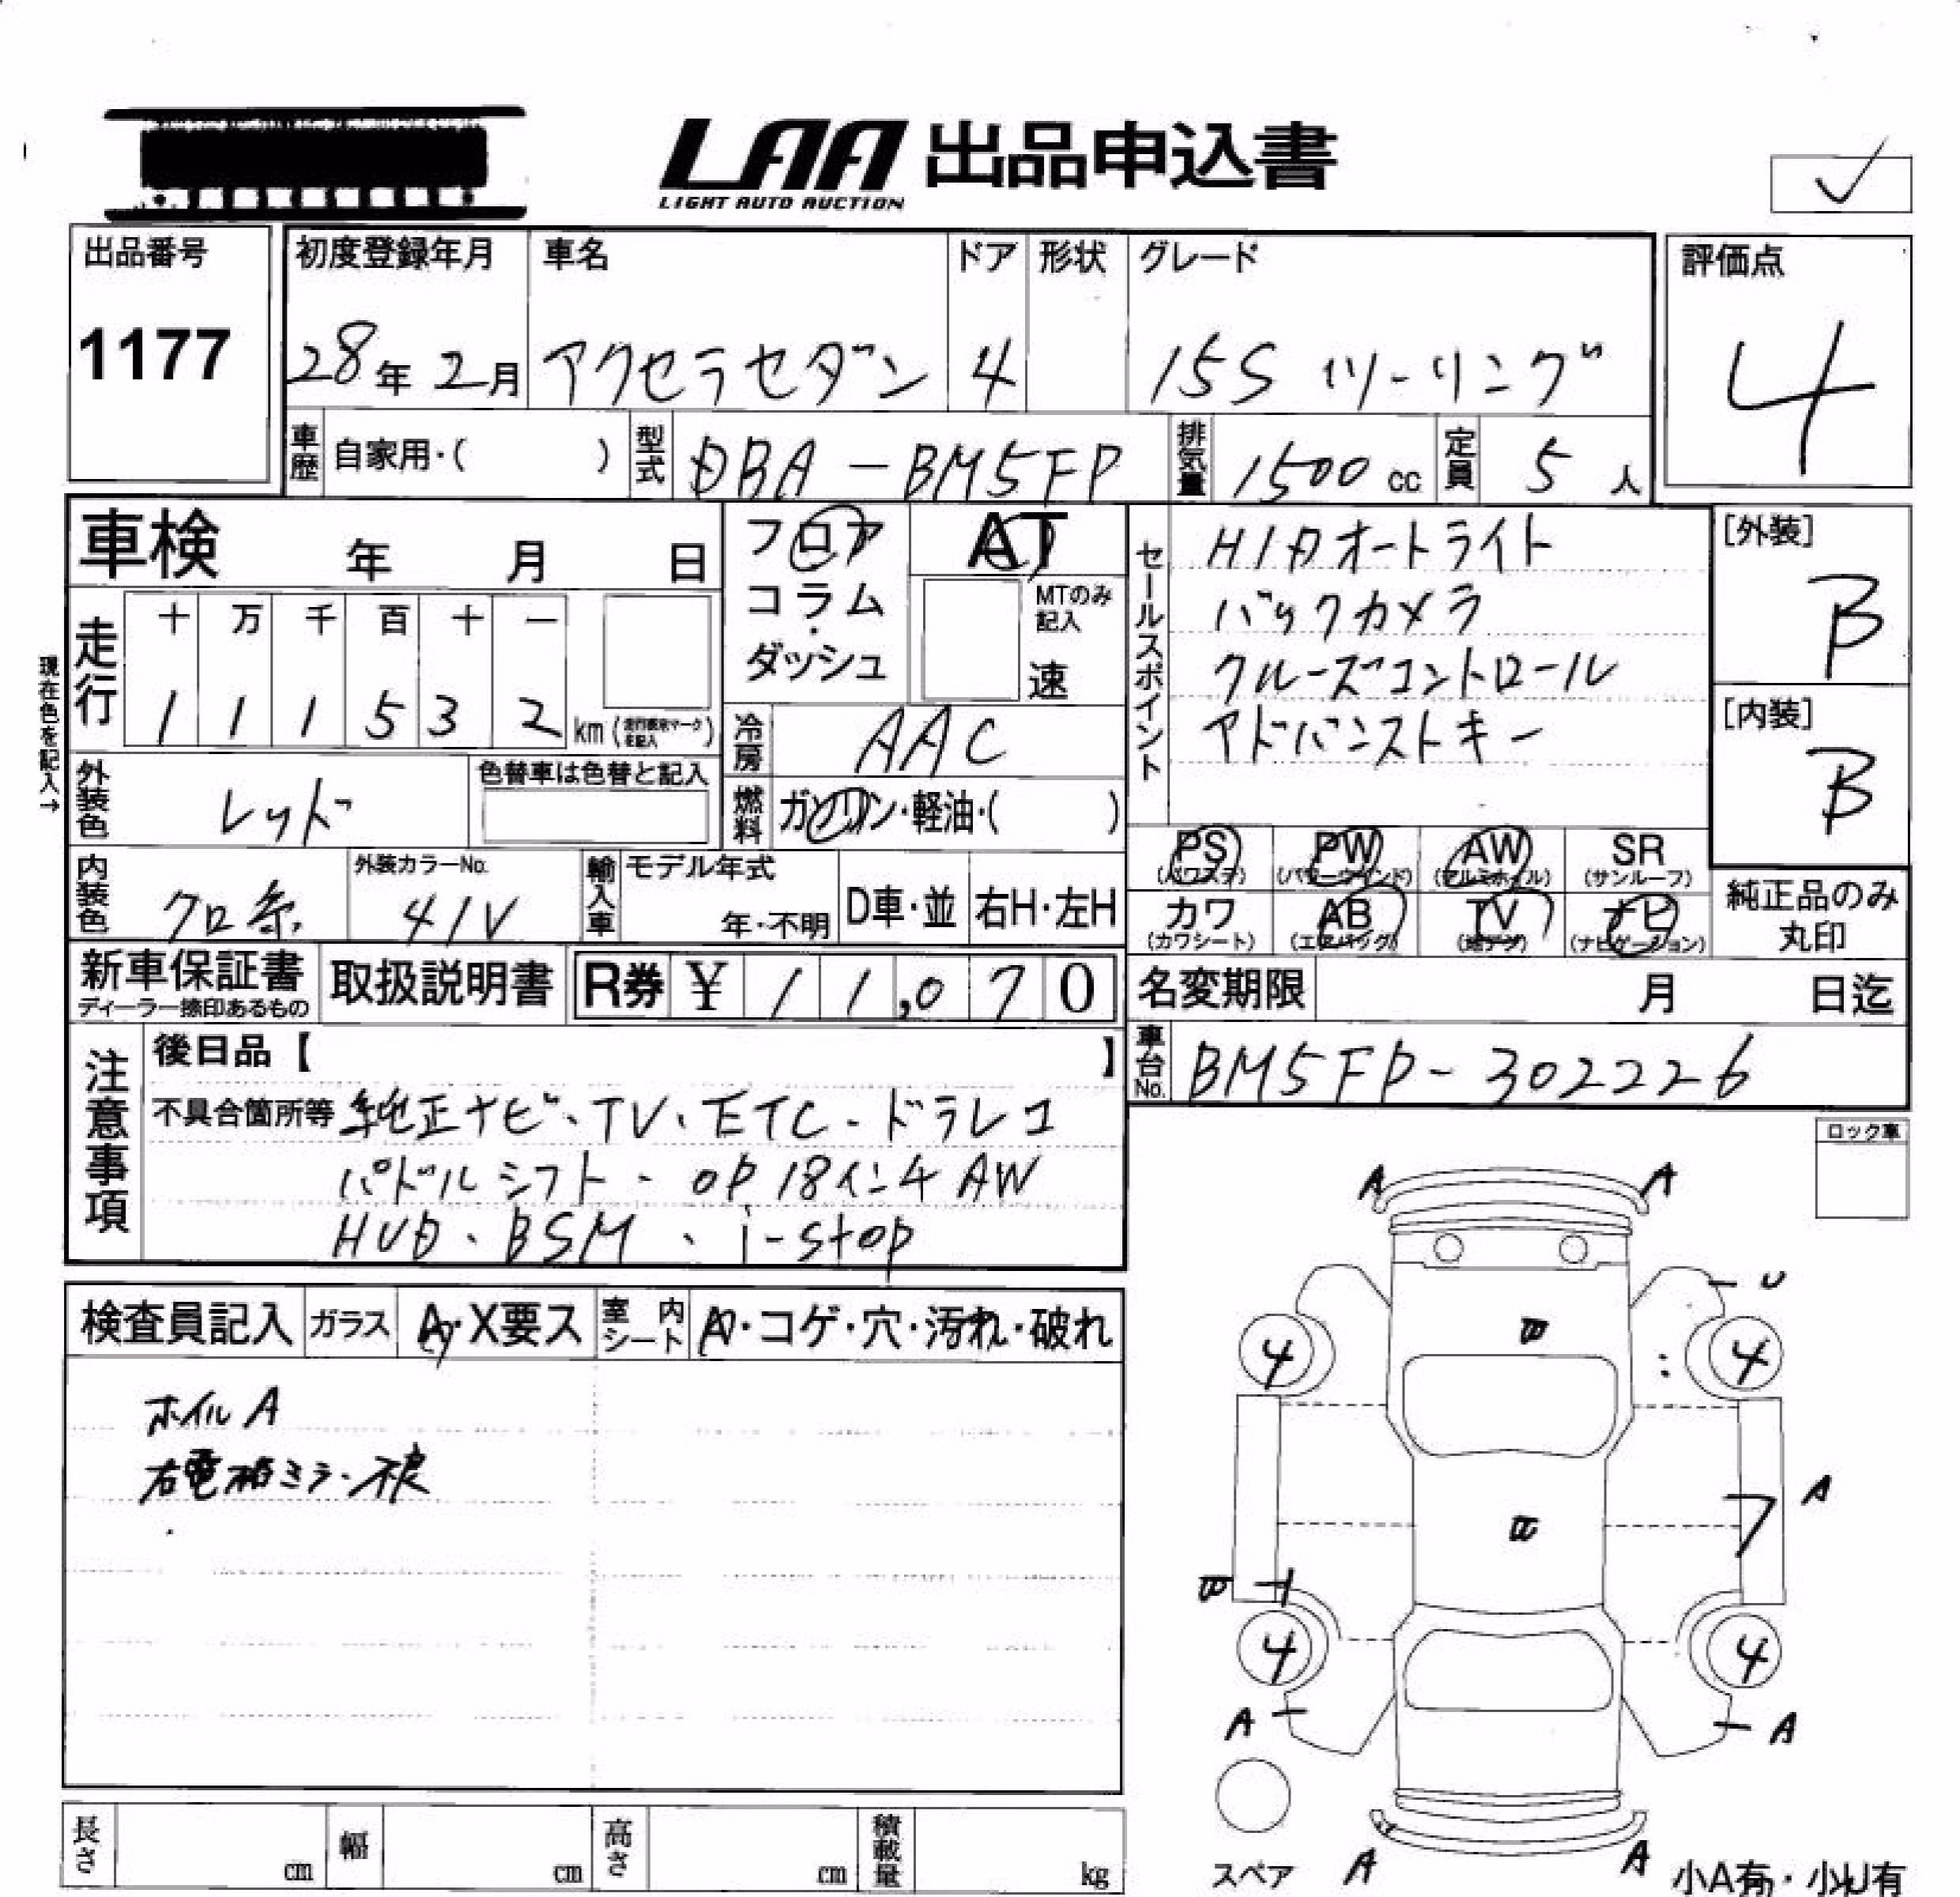 LAA 出品申込書
LIGHT AUTO AUCTION
✓
出品番号
1177
初度登録年月 車名 ドア 形状 グレード
28年 2月 アクセラセダン 4 15S ツーリング
車歴 自家用・( ) 型式 DBA-BM5FP 排気量 1500 cc 定員 5 人
評価点
4
車検 年 月 日
フロア
コラム
・
ダッシュ
AT
MTのみ
記入
速
現在色を記入→
走行
十 万 千 百 十 一
1 1 1 5 3 2 km
冷房 AAC
燃料 ガソリン・軽油・( )
外装色 レッド
色替車は色替と記入
内装色 クロ系
外装カラーNo.
41V
輸入車 モデル年式
年・不明
D車・並 右H・左H
セールスポイント
HIDオートライト
バックカメラ
クルーズコントロール
アドバンストキー
[外装]
B
[内装]
B
PS PW AW SR
(パワステ) (パワーウインド) (アルミホイル) (サンルーフ)
カワ AB TV ナビ
(カワシート) (エアバッグ) (地デジ) (ナビゲーション)
純正品のみ
丸印
新車保証書
ディーラー捺印あるもの
取扱説明書
R券 ¥ 11,070
名変期限 月 日迄
車台No. BM5FP-302226
注意事項
後日品【 】
不具合箇所等 純正ナビ・TV・ETC・ドラレコ
パドルシフト・OP 18インチAW
HUD・BSM・i-stop
ロック車
検査員記入 ガラス A・X要ス 室内シート ・コゲ・穴・汚れ・破れ
ホイルA
右電格ミラー不良
A A
U
4 4
A
4 4
A A
A A
スペア
小A有・小U有
長さ cm 幅 cm 高さ cm 積載量 kg